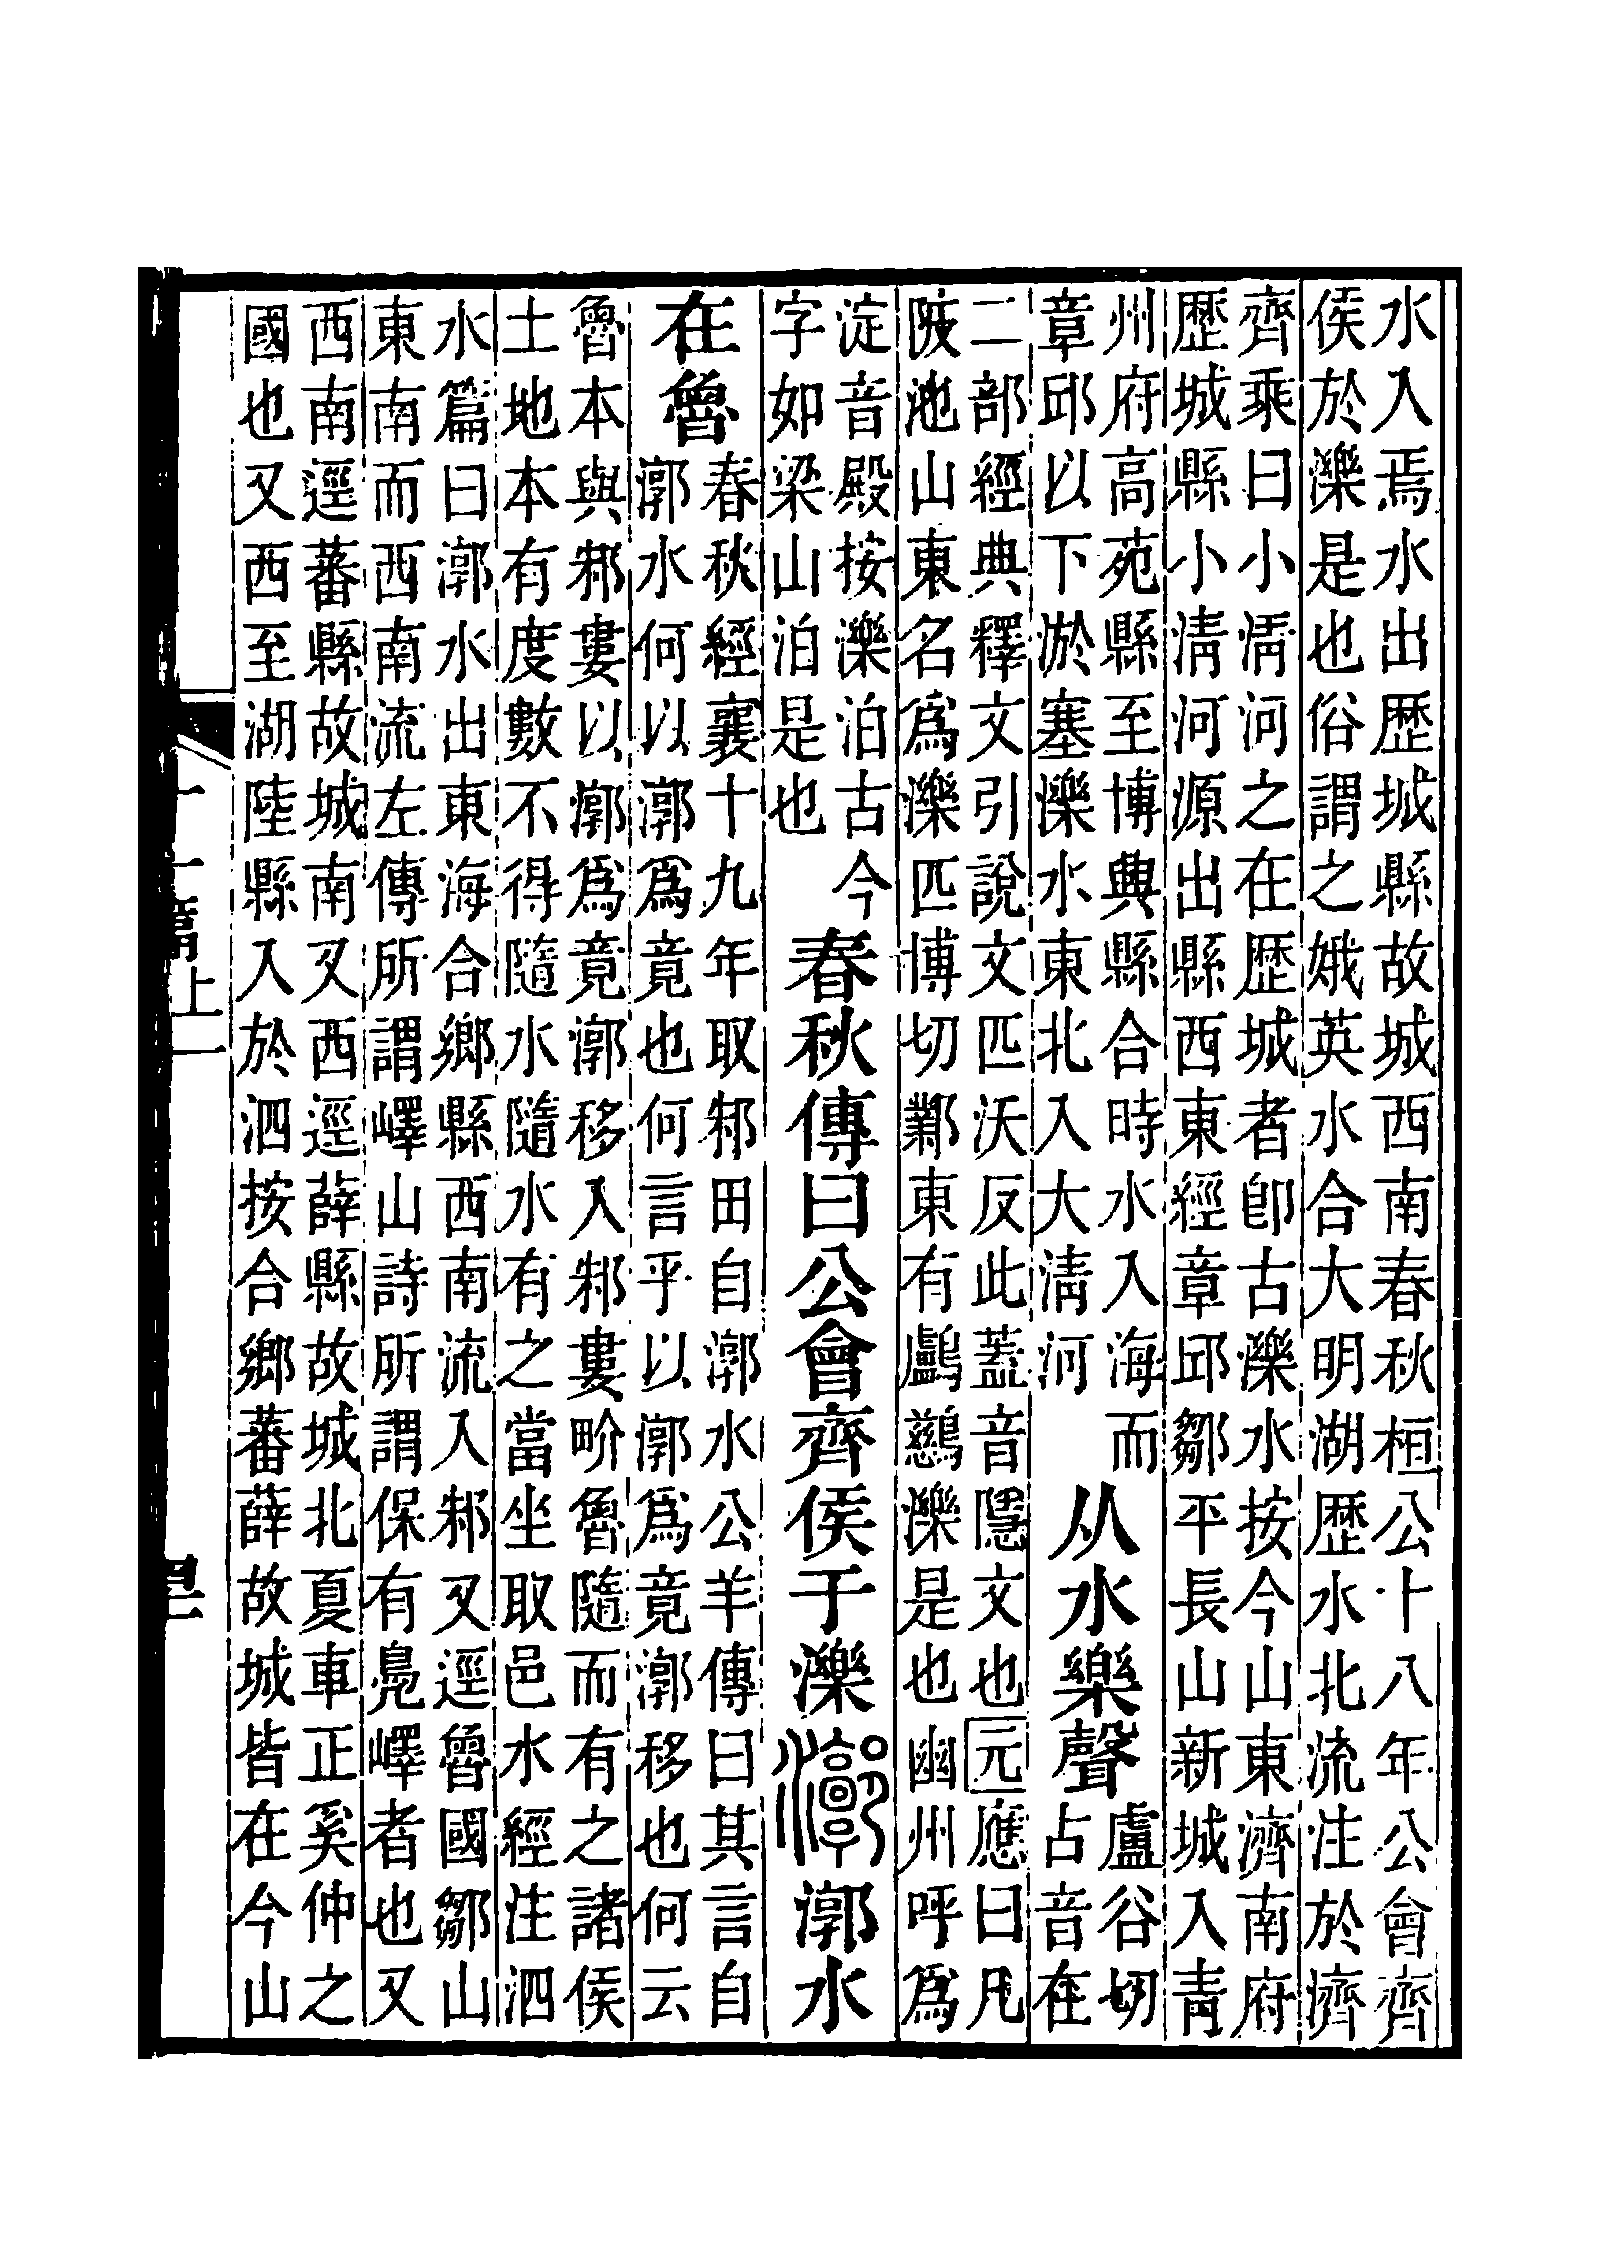 水入焉水出歷城縣故城西南春秋桓公十八年公會齊
侯於濼是也俗謂之娥英水合大明湖歷水北流注於濟
齊乘曰小淸河之在歷城者卽古濼水按今山東濟南府
歷城縣小淸河源出縣西東經章邱鄒平長山新城入靑
州府高苑縣至博興縣合時水入海而
章邱以下淤塞濼水東北入大淸河
从水樂聲
盧谷切
古音在
二部經典釋文引說文匹沃反此葢音隱文也元應曰凡
陂池山東名爲濼匹博切鄴東有鸕鷀濼是也幽州呼爲
淀音殿按濼泊古今
字如梁山泊是也
春秋傳曰公會齊侯于濼
漷水
在魯
春秋經襄十九年取邾田自漷水公羊傳曰其言自
漷水何以漷爲竟也何言乎以漷爲竟漷移也何云
魯本與邾婁以漷爲竟漷移入邾婁畍魯隨而有之諸侯
土地本有度數不得隨水隨水有之當坐取邑水經注泗
水篇曰漷水出東海合鄉縣西南流入邾又逕魯國鄒山
東南而西南流左傳所謂嶧山詩所謂保有鳧嶧者也又
西南逕蕃縣故城南又西逕薛縣故城北夏車正奚仲之
國也又西至湖陸縣入於泗按合鄉蕃薛故城皆在今山
十一篇上一